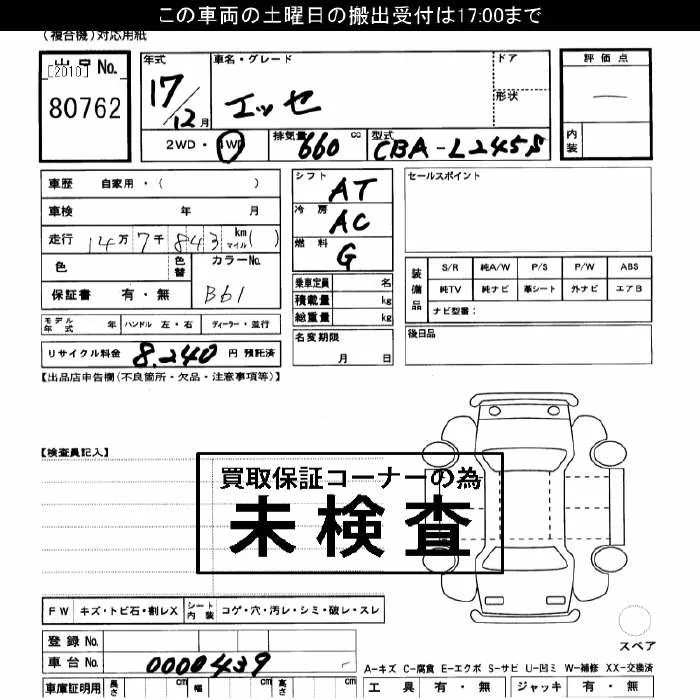 この車両の土曜日の搬出受付は17:00まで
(複合機)対応用紙
出品No.
[2010]
80762
年式 車名・グレード ドア 評価点
17/12月 エッセ 形状 —
2WD・4WD 排気量 660 cc 型式 CBA-L245S 内装
車歴 自家用・( )
車検 年 月
走行 14万7千843 km マイル( )
色 色替 カラーNo.
保証書 有・無 B61
モデル年式 年 ハンドル 左・右 ディーラー・並行
リサイクル料金 8,240 円 預託済
シフト AT
冷房 AC
燃料 G
乗車定員 名
積載量 kg
総重量 kg
名変期限
月 日
セールスポイント
装備品 S/R 純A/W P/S P/W ABS
純TV 純ナビ 革シート 外ナビ エアB
ナビ型番:
後日品
【出品店申告欄(不良箇所・欠品・注意事項等)】
【検査員記入】
買取保証コーナーの為
未検査
FW キズ・トビ石・割レX シート内装 コゲ・穴・汚レ・シミ・破レ・スレ
登録No.
車台No. 0000439
車庫証明用 長さ cm 幅 cm 高さ cm
スペア
A-キズ C-腐食 E-エクボ S-サビ U-凹ミ W-補修 XX-交換済
工具 有・無 ジャッキ 有・無